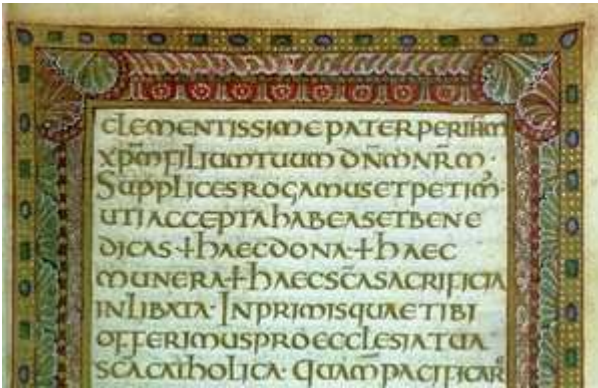 CLEMENTISSIMEPATERPERIHM
XPMFILIUMTUUM DNMNRM·
SUPPLICESROGAMUSETPETIM·
UTIACCEPTAHABEASETBENE
DICAS+HAECDONA·+HAEC
MUNERA+HAECSCASACRIFICIA
INLIBATA· INPRIMISQUAETIBI
OFFERIMUSPROECCLESIATUA
SCACATHOLICA· QUAMPACIFICAR